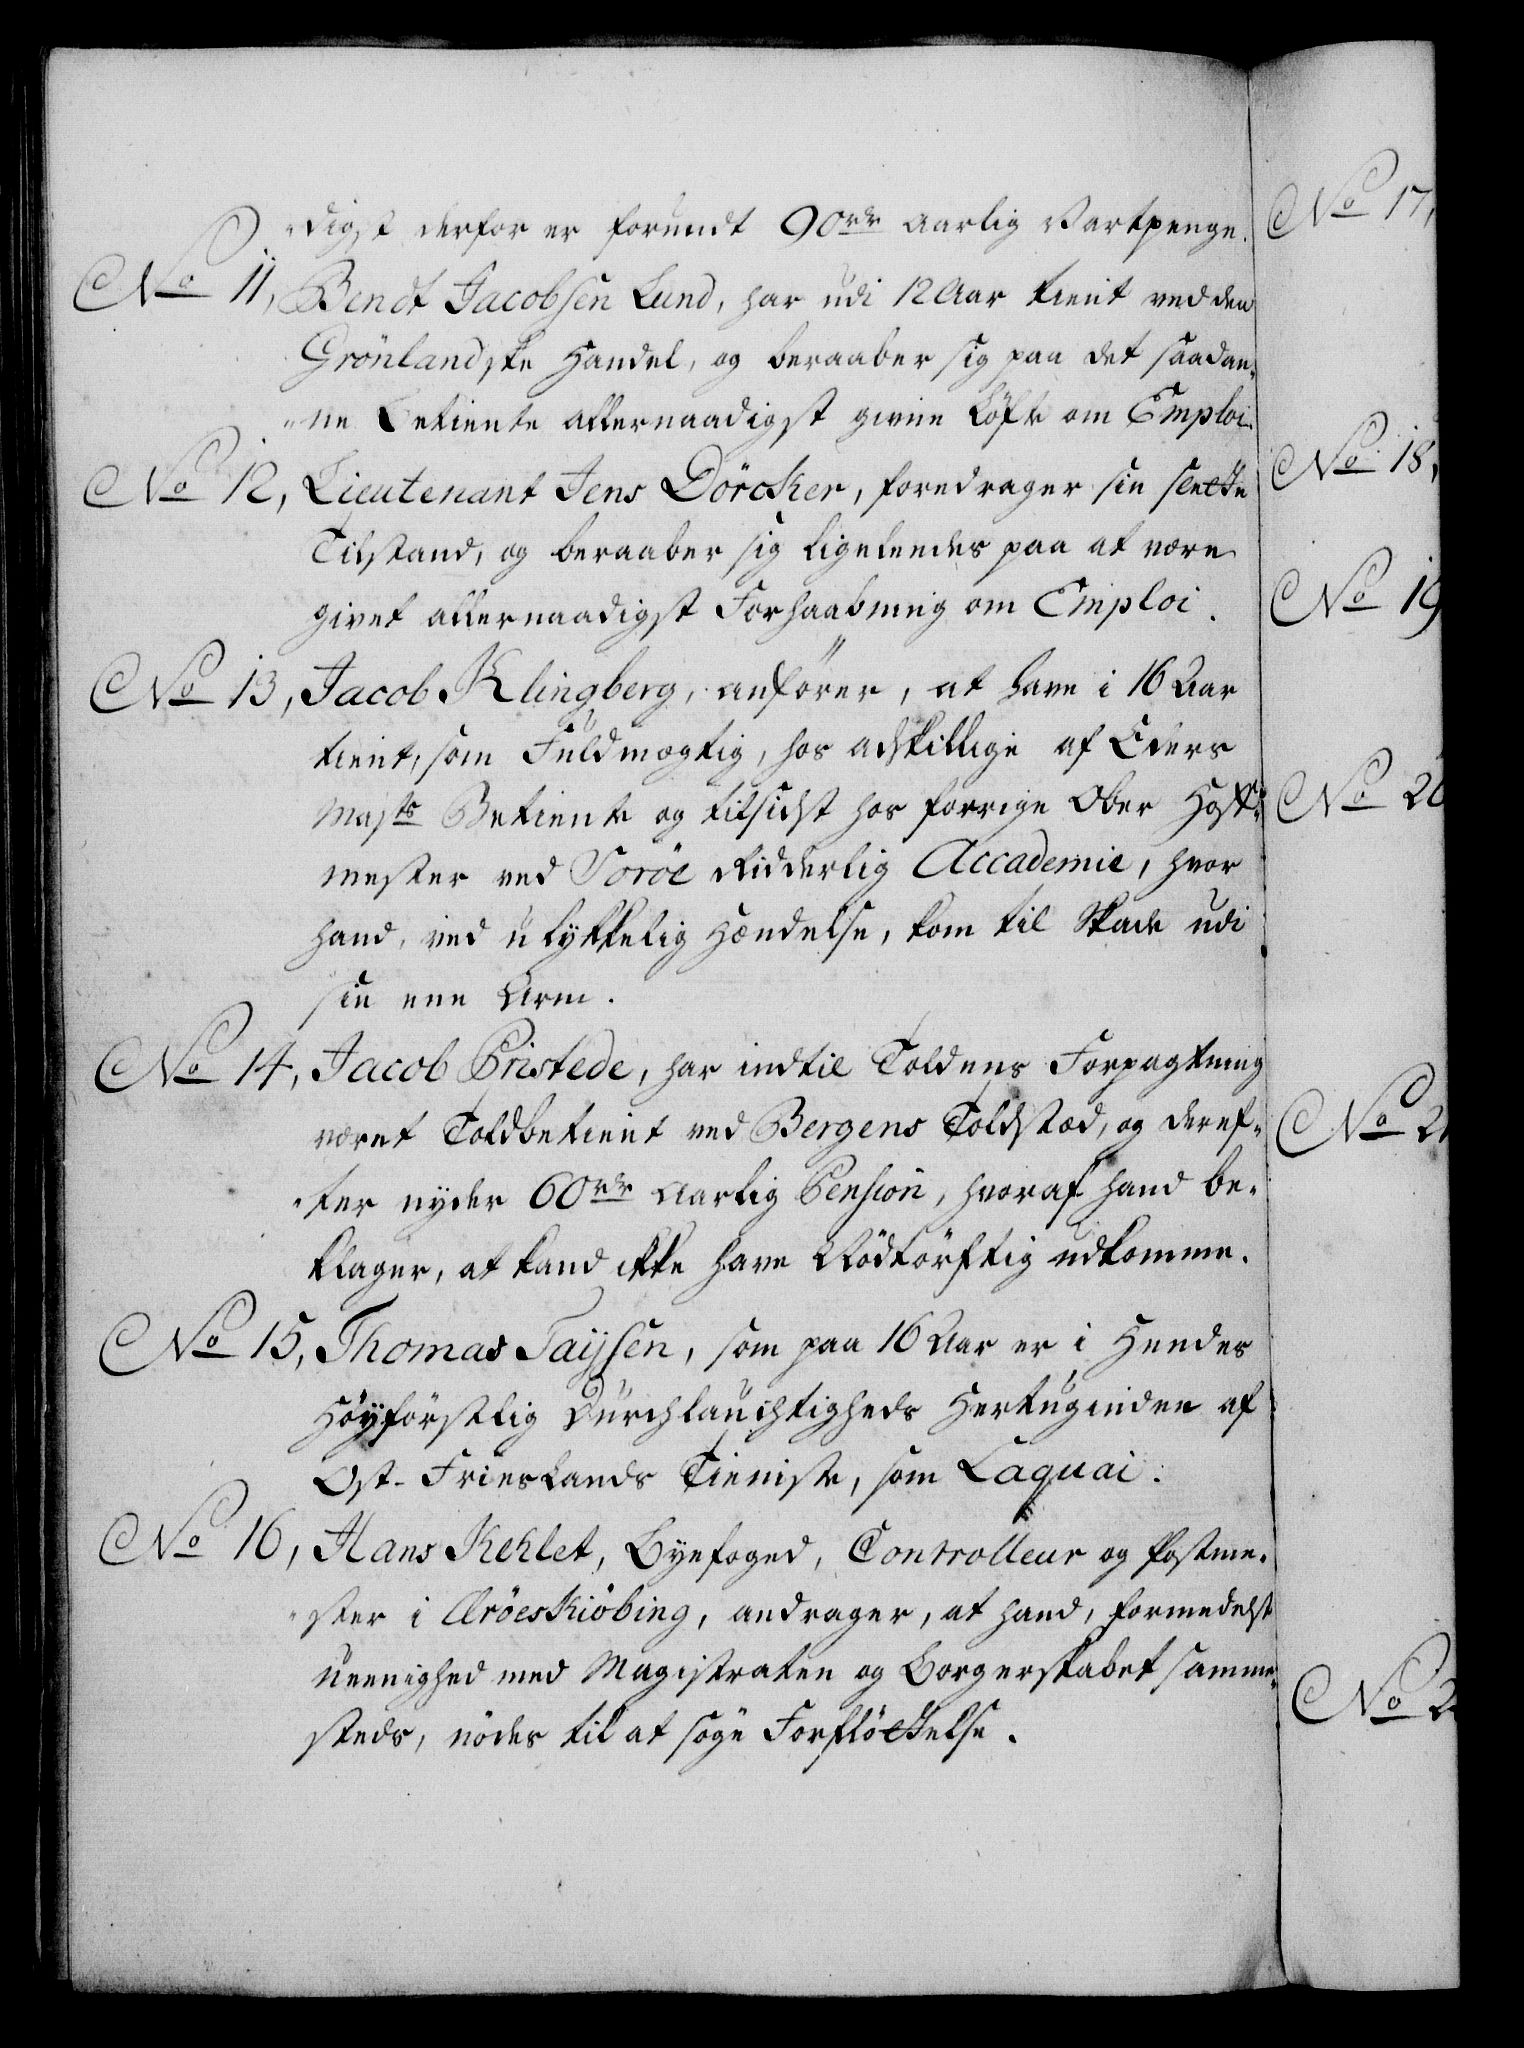 „digst derfor er forundt 90rdr aarlig Vartpenge.
No 11, Bendt Jacobsen Lund, har udi 12 Aar tient ved den
Grönlandske Handel, og beraaber sig paa det saadan-
„ne Betiente allernaadigst givne Löfte om Emploi.
No 12, Lieutenant Jens Dörcker, foredrager sin slette
Tilstand, og beraaber sig ligeledes paa at være
givet allernaadigst Forhaabning om Emploi.
No 13, Jacob Klingberg, anförer, at have i 16 Aar
tient, som Fuldmægtig, hos adskillige af Eders
Majts Betiente og tilsidst hos forrige Ober Hof-
mester ved Soröe Ridderlig Accademie, hvor
hand, ved ulykkelig Hændelse, kom til Skade udi
sin ene Arm.
No 14, Jacob Pristede, har indtil Toldens Forpagtning
været Toldbetient ved Bergens Toldstæd, og deref-
„ter nyder 60rdr aarlig Pension, hvoraf hand be-
klager, at kand ikke have Nödtörftig udkomme.
No 15, Thomas Taysen, som paa 16 Aar er i Hendes
Höyförstlig Durchlauchtigheds Hertuginden af
Ost-Frieslands Tieniste, som Laquai.
No 16, Hans Kehlet, Byefoged, Controlleur og Postme-
„ster i Æröeskiöbing, andrager, at hand, formedelst
Ueenighed med Magistraten og Borgerskabet samme-
steds, nödes til at söge Forflöttelse.
No 17,
No 18,
No 19
No 20
No 21
No 2